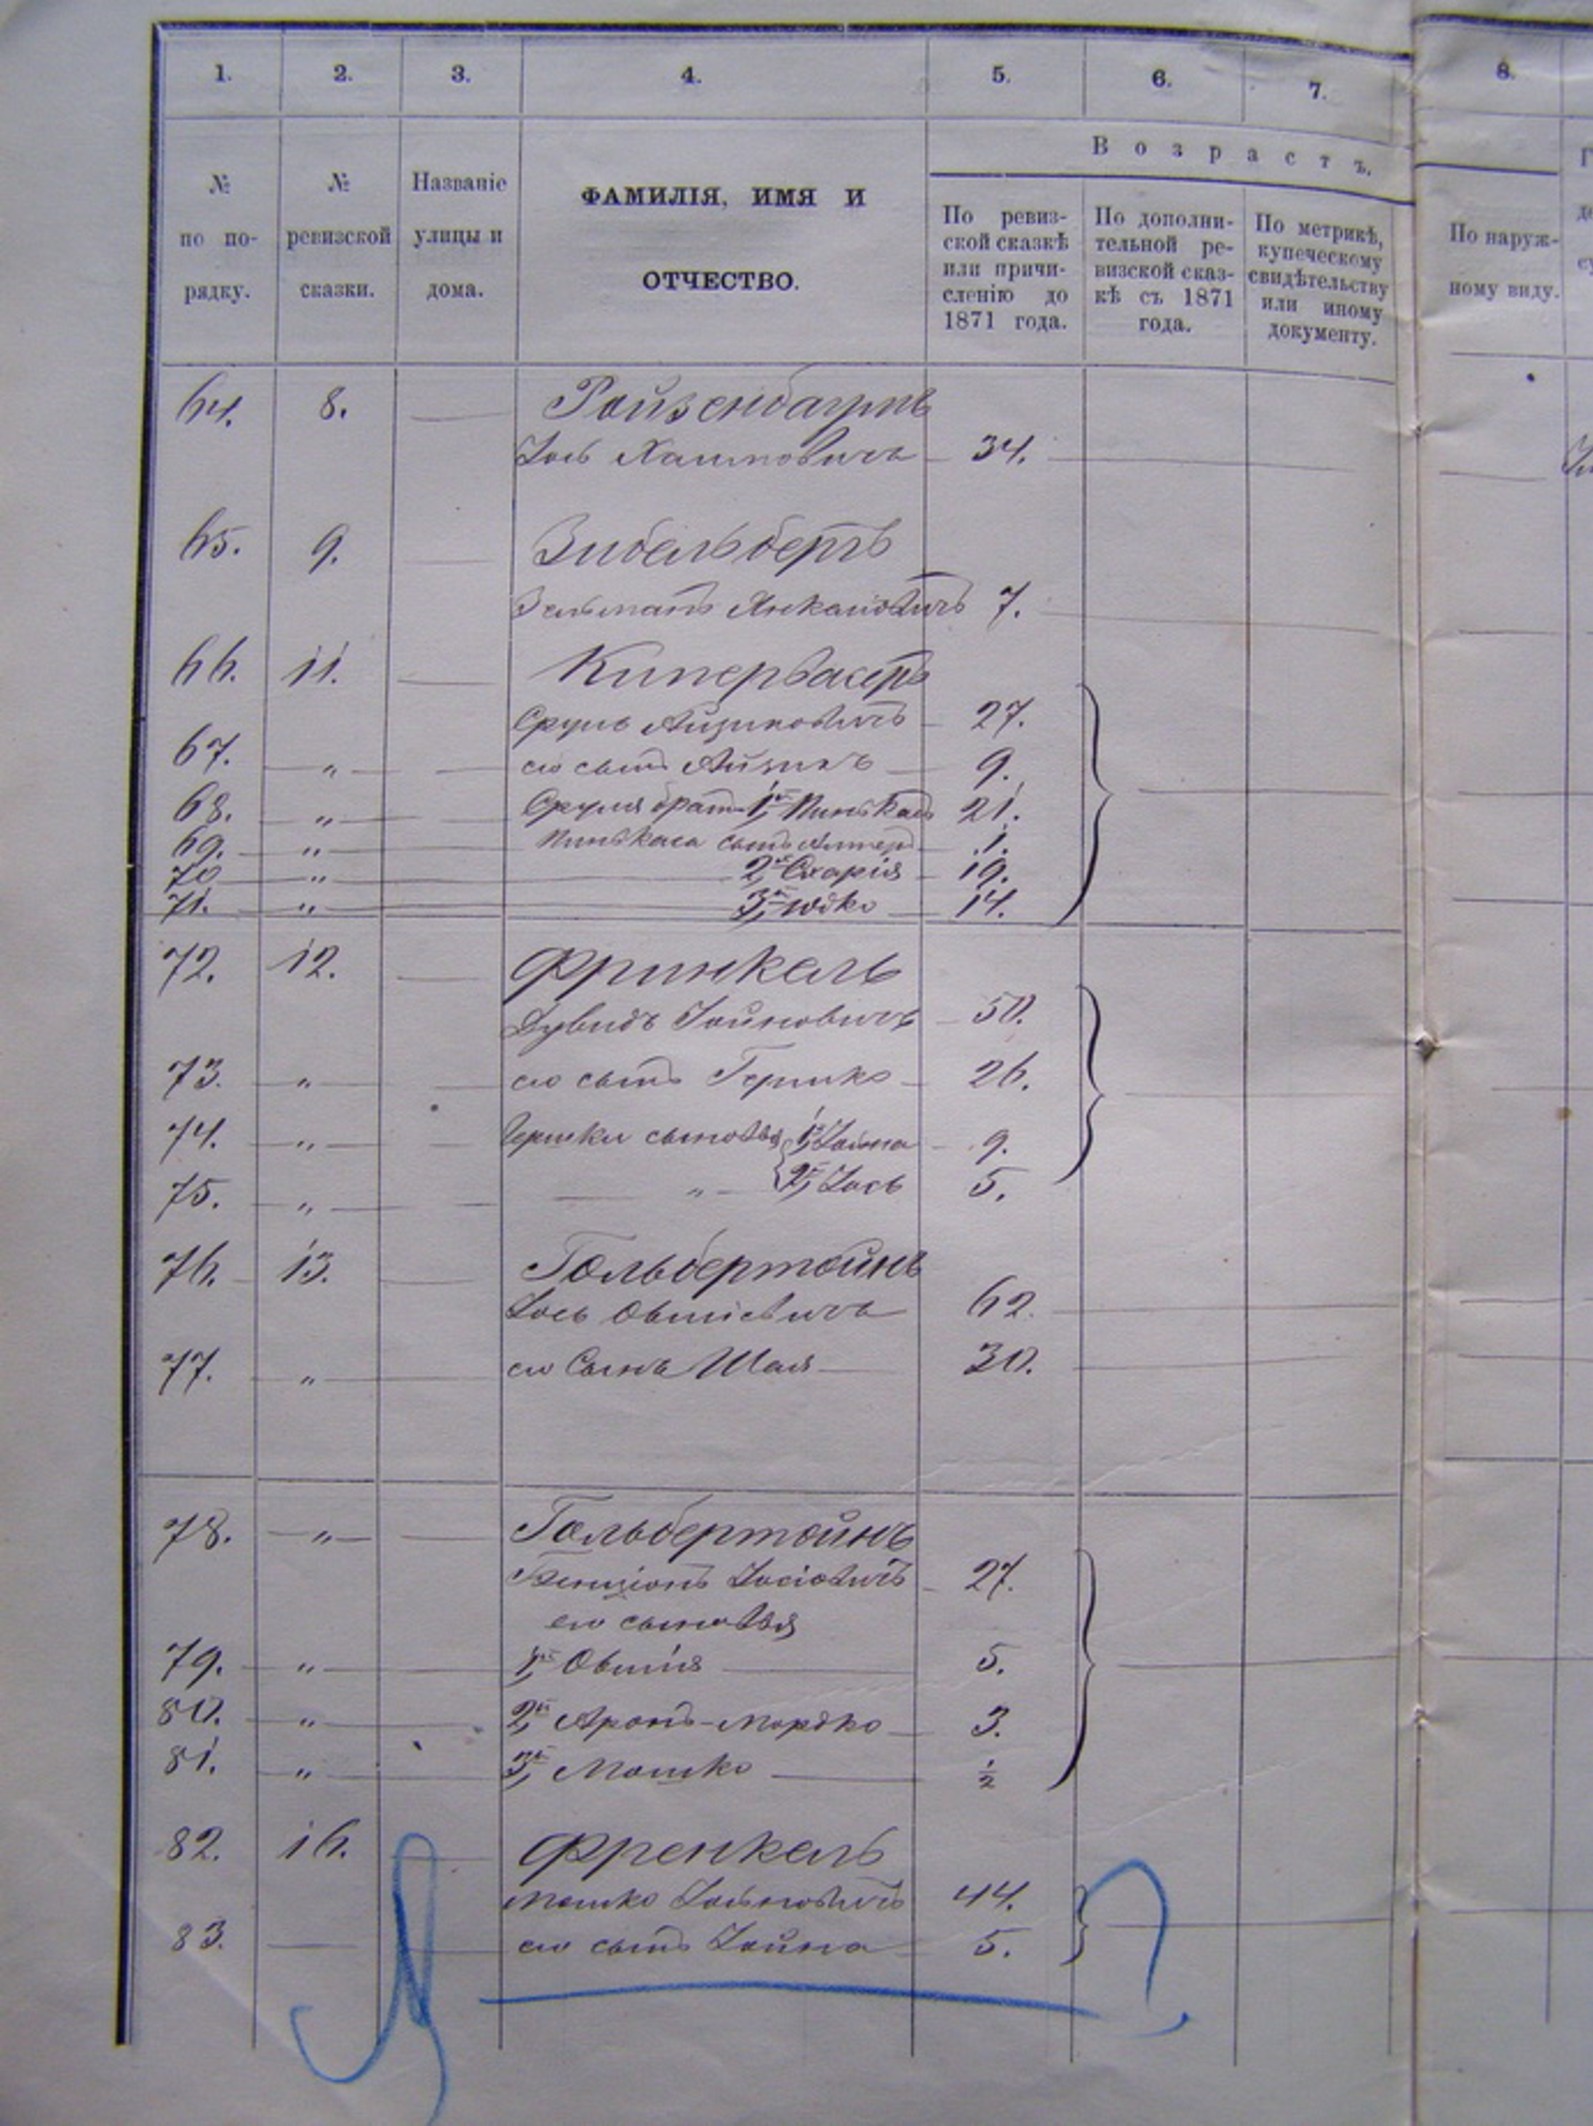 1. 2. 3. 4. 5. 6. 7. 8.
Возрастъ.
№ по порядку.
№ ревизской сказки.
Названіе улицы и дома.
ФАМИЛІЯ, ИМЯ И ОТЧЕСТВО.
По ревиз-
ской сказкѣ
или причи-
сленію до
1871 года.
По дополни-
тельной ре-
визской сказ-
кѣ съ 1871
года.
По метрикѣ,
купеческому
свидѣтельству
или иному
документу.
По наруж-
ному виду.
64. 8. Ройзенбаумъ
Іось Хаимовичъ 34.
65. 9. Зибельбергъ
Зельманъ Янкелiовичъ 7.
66. 11. Кипервасеръ
Сруль Айзиковичъ 27.
67. „ его сынъ Айзикъ 9.
68. „ Сруля братья 1й, Пинькасъ 21.
69. „ Пинькаса сынъ Алтеръ 1.
70 „ 2й, Схарія 19.
71. „ 3й, Юдко 14.
72. 12. Фринкель
Дувидъ Іойновичъ 50.
73. „ его сынъ Гершко 26.
74. „ Гершки сыновья 1й, Іойна 9.
75. „ „ 2й, Іось 5.
76. 13. Гольбертойнъ
Іось Овшіевичъ 62.
77. „ его Сынъ Шая 30.
78. „ Гольбертойнъ
Бенціонъ Іосіовичъ 27.
его сыновья
79. „ 1й, Овшія 5.
80. „ 2й, Аронъ-Мордко 3.
81. „ 3й, Мошко ½
82. 16. Френкель
Мошко Іойновичъ 44.
83. его сынъ Іойна 5.